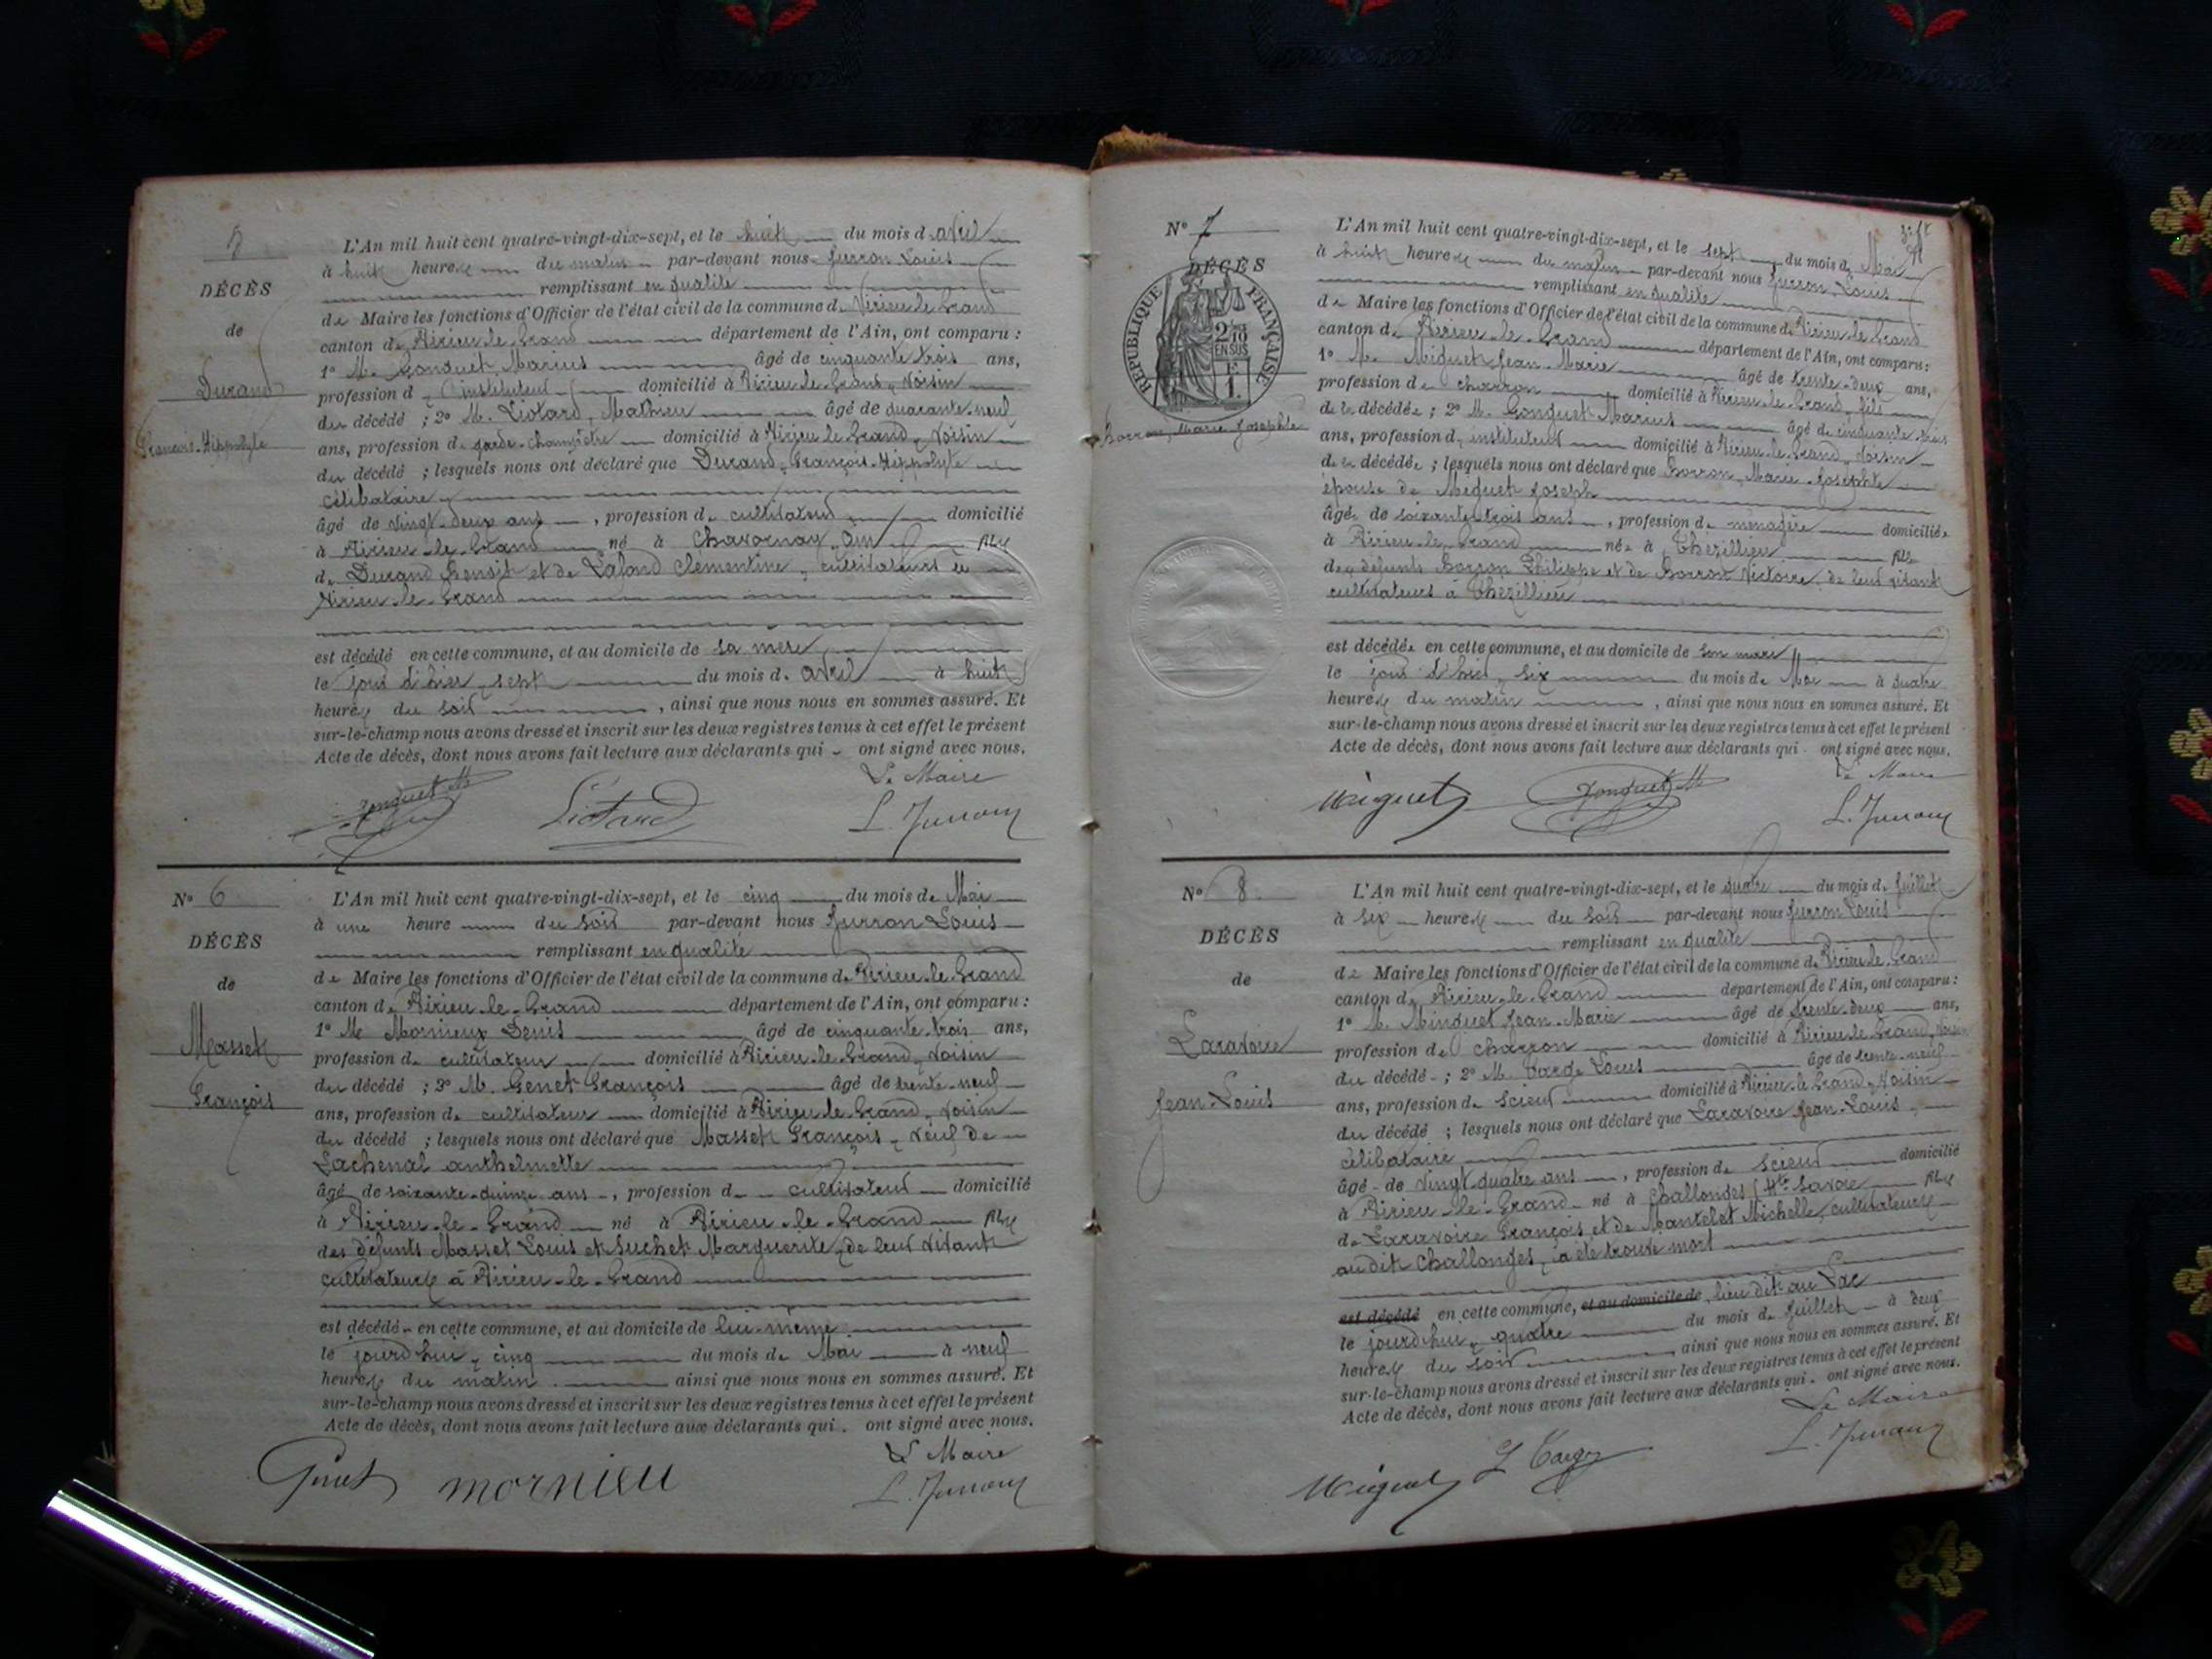 5
DÉCÈS
de
Durand
François-Hippolyte
L'An mil huit cent quatre-vingt-dix-sept, et le huit du mois d avril
à huit heures du matin par-devant nous Jurron Louis
remplissant en qualité
de Maire les fonctions d'Officier de l'état civil de la commune de Virieu-le-Grand
canton de Virieu-le-Grand département de l'Ain, ont comparu :
1° M. Gonguet Marius âgé de cinquante-trois ans,
profession d'instituteur domicilié à Virieu-le-Grand, voisin
du décédé ; 2° M. Liotard, Mathieu âgé de quarante-neuf
ans, profession de garde-champêtre domicilié à Virieu-le-Grand, voisin
du décédé ; lesquels nous ont déclaré que Durand, François-Hippolyte
célibataire
âgé de vingt-deux ans, profession de cultivateur domicilié
à Virieu-le-Grand né à Chavornay, Ain fils
de Durand Benoit et de Lafond Clémentine, cultivateurs à
Virieu-le-Grand
est décédé en cette commune, et au domicile de sa mère
le jour d'hier, sept du mois d avril à huit
heures du soir, ainsi que nous nous en sommes assuré. Et
sur-le-champ nous avons dressé et inscrit sur les deux registres tenus à cet effet le présent
Acte de décès, dont nous avons fait lecture aux déclarants qui ont signé avec nous.
Le Maire
Gonguet M Liotard L. Jurron
N° 6
DÉCÈS
de
Masset
François
L'An mil huit cent quatre-vingt-dix-sept, et le cinq du mois de Mai
à une heure du soir par-devant nous Jurron Louis
remplissant en qualité
de Maire les fonctions d'Officier de l'état civil de la commune de Virieu-le-Grand
canton de Virieu-le-Grand département de l'Ain, ont comparu :
1° M. Mornieux Denis âgé de cinquante-trois ans,
profession de cultivateur domicilié à Virieu-le-Grand, voisin
du décédé ; 2° M. Genet François âgé de trente-neuf
ans, profession de cultivateur domicilié à Virieu-le-Grand, voisin
du décédé ; lesquels nous ont déclaré que Masset François, veuf de
Lachenal anthelmette
âgé de soixante-quinze ans, profession de cultivateur domicilié
à Virieu-le-Grand né à Virieu-le-Grand fils
des défunts Masset Louis et Suchet Marguerite, de leur vivant
cultivateurs à Virieu-le-Grand
est décédé en cette commune, et au domicile de lui-même
le jourd'hui, cinq du mois de Mai à neuf
heures du matin ainsi que nous nous en sommes assuré. Et
sur-le-champ nous avons dressé et inscrit sur les deux registres tenus à cet effet le présent
Acte de décès, dont nous avons fait lecture aux déclarants qui ont signé avec nous.
Le Maire
Genet mornieu L. Jurron
N° 7
DÉCÈS
RÉPUBLIQUE FRANÇAISE
2/10
EN SUS
1 F
Borron, Marie Josephte
L'An mil huit cent quatre-vingt-dix-sept, et le sept du mois de Mai
à huit heures du matin par-devant nous Jurron, Louis
remplissant en qualité
de Maire les fonctions d'Officier de l'état civil de la commune de Virieu-le-Grand
canton de Virieu-le-Grand département de l'Ain, ont comparu :
1° M. Miguet Jean-Marie âgé de trente-deux ans,
profession de charron domicilié à Virieu-le-Grand, fils
de la décédée ; 2° M. Gonguet Marius âgé de cinquante-trois
ans, profession d'instituteur domicilié à Virieu-le-Grand, voisin
de la décédée ; lesquels nous ont déclaré que Borron, Marie-Josephte
épouse de Miguet Joseph
âgée de soixante-trois ans, profession de ménagère domiciliée
à Virieu-le-Grand née à Thézillieu fille
des défunts Borron Philippe et de Borron Victoire, de leur vivant
cultivateurs à Thézillieu
est décédée en cette commune, et au domicile de son mari
le jour d'hier, six du mois de Mai à quatre
heures du matin, ainsi que nous nous en sommes assuré. Et
sur-le-champ nous avons dressé et inscrit sur les deux registres tenus à cet effet le présent
Acte de décès, dont nous avons fait lecture aux déclarants qui ont signé avec nous.
Le Maire
Miguet Gonguet M L. Jurron
N° 8
DÉCÈS
de
Laravoire
Jean-Louis
L'An mil huit cent quatre-vingt-dix-sept, et le quatre du mois de Juillet
à six heures du soir par-devant nous Jurron Louis
remplissant en qualité
de Maire les fonctions d'Officier de l'état civil de la commune de Virieu-le-Grand
canton de Virieu-le-Grand département de l'Ain, ont comparu :
1° M. Minguet Jean-Marie âgé de trente-deux ans,
profession de charron domicilié à Virieu-le-Grand, voisin
du décédé ; 2° M. Louis âgé de trente-neuf
ans, profession de scieur domicilié à Virieu-le-Grand, voisin
du décédé ; lesquels nous ont déclaré que Laravoire Jean-Louis,
célibataire
âgé de vingt-quatre ans, profession de scieur domicilié
à Virieu-le-Grand né à Challonges (Hte Savoie fils
de Laravoire François et de Mantelet Michelle, cultivateurs
au dit Challonges, a été trouvé mort
est décédé en cette commune, et au domicile de, lieu dit au Lac
le jourd'hui, quatre du mois de Juillet à deux
heures du soir ainsi que nous nous en sommes assuré. Et
sur-le-champ nous avons dressé et inscrit sur les deux registres tenus à cet effet le présent
Acte de décès, dont nous avons fait lecture aux déclarants qui ont signé avec nous.
Le Maire
Miguet L. Jurron